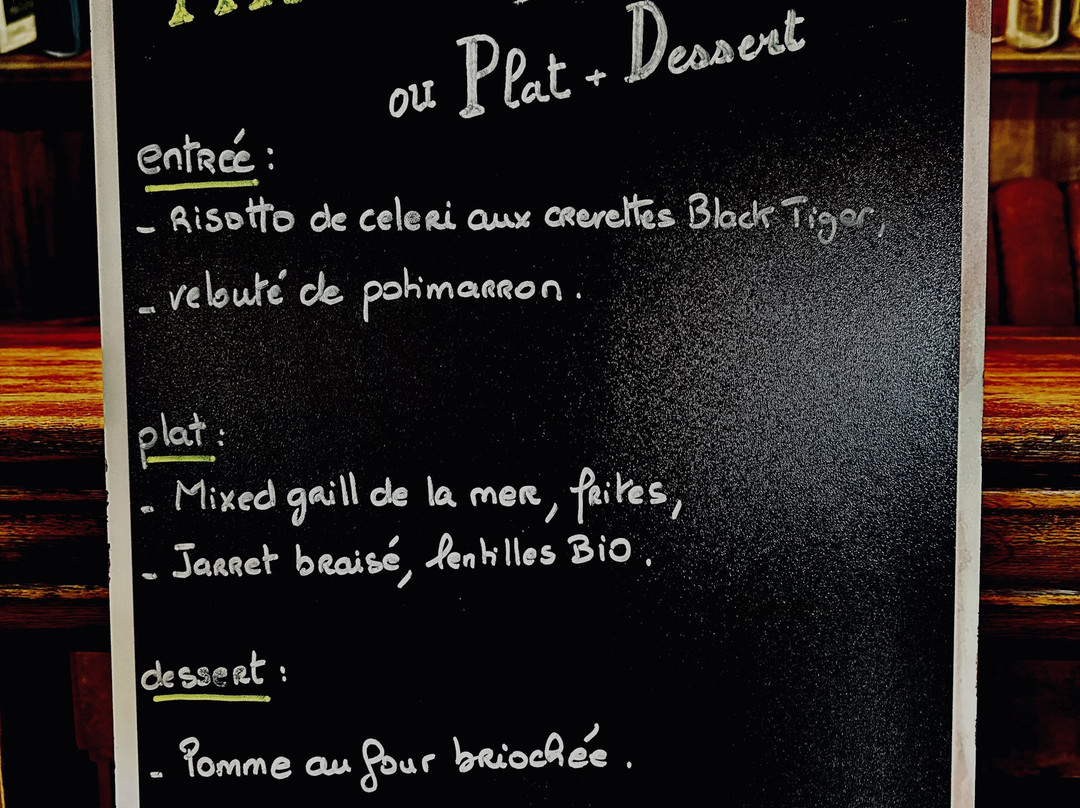 ou Plat + Dessert
entrée :
- Risotto de celeri aux crevettes Black Tiger,
- velouté de potimarron.
plat :
- Mixed grill de la mer, frites,
- Jarret braisé, lentilles Bio.
dessert :
- Pomme au four briochée.